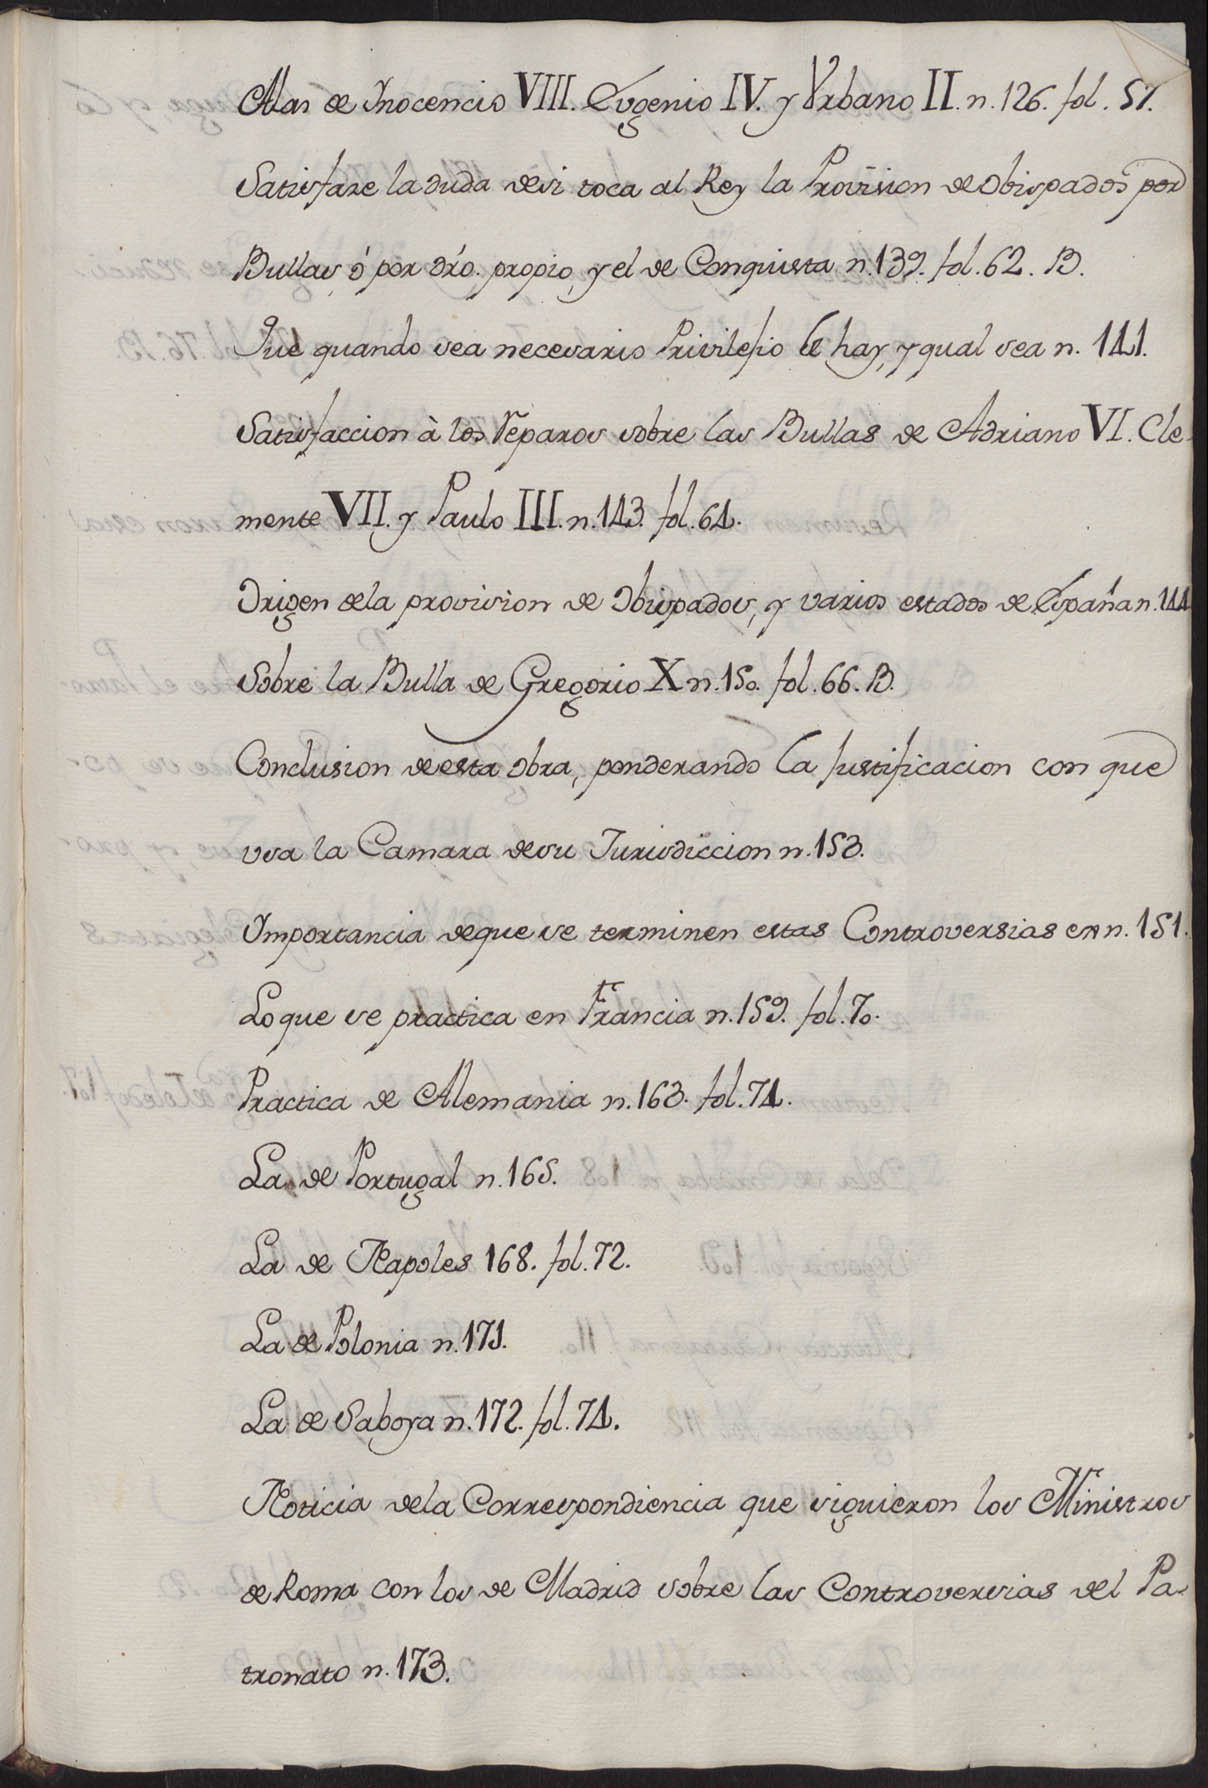 Alas de Inocencio VIII. Eugenio IV. y Urbano II. n. 126. fol. 57.
Satisfaze la duda de si toca al Rey la Provision de Obispados por
Bullas, ó por dro. propio, y el de Conquista n. 139. fol. 62. B.
Que quando sea necesario Privilegio le hay, y qual sea n. 141.
Satisfaccion à los Reparos sobre las Bullas de Adriano VI. Cle
mente VII. y Paulo III. n. 143. fol. 64.
Origen de la provision de Obispados, y varios estados de España n. 144
Sobre la Bulla de Gregorio X n. 150. fol. 66. B.
Conclusion de esta Obra, ponderando la justificacion con que
usa la Camara de su Jurisdiccion n. 153.
Importancia de que se terminen estas Controversias n. 151.
Lo que se practica en Francia n. 159. fol. 70.
Practica de Alemania n. 163. fol. 74.
La de Portugal n. 165.
La de Napoles 168. fol. 72.
La de Polonia n. 171.
La de Saboya n. 172. fol. 74.
Noticia de la Correspondiencia que siguieron los Ministros
de Roma con los de Madrid sobre las Controversias del Pa-
tronato n. 173.